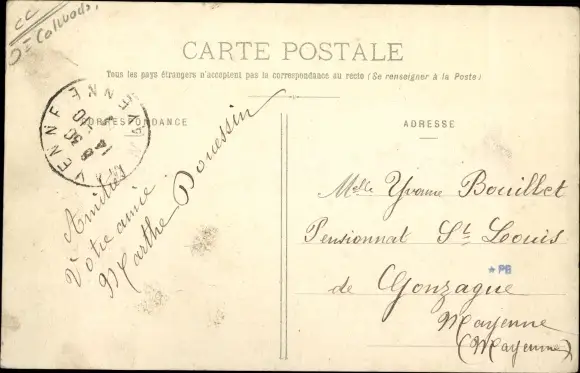 CC
Dt Calvados.
CARTE POSTALE
Tous les pays étrangers n'acceptent pas la correspondance au recto (Se renseigner à la Poste)
CORRESPONDANCE
ADRESSE
Amitiés
Votre amie
Marthe Douessin
Melle Yvonne Bouillet
Pensionnat St Louis
de Gonzague
* PB
Mayenne
(Mayenne)